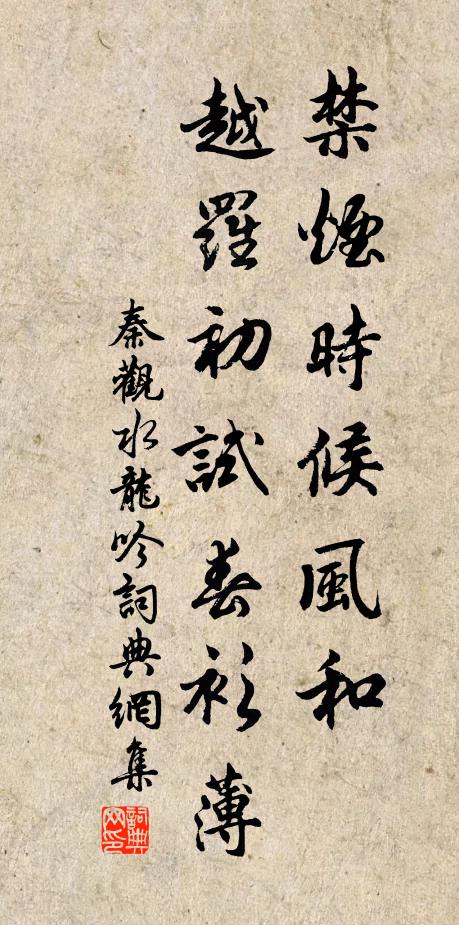 禁煙時候風和
越羅初試春衫薄
秦觀水龍吟詞典網集
詞典
网印